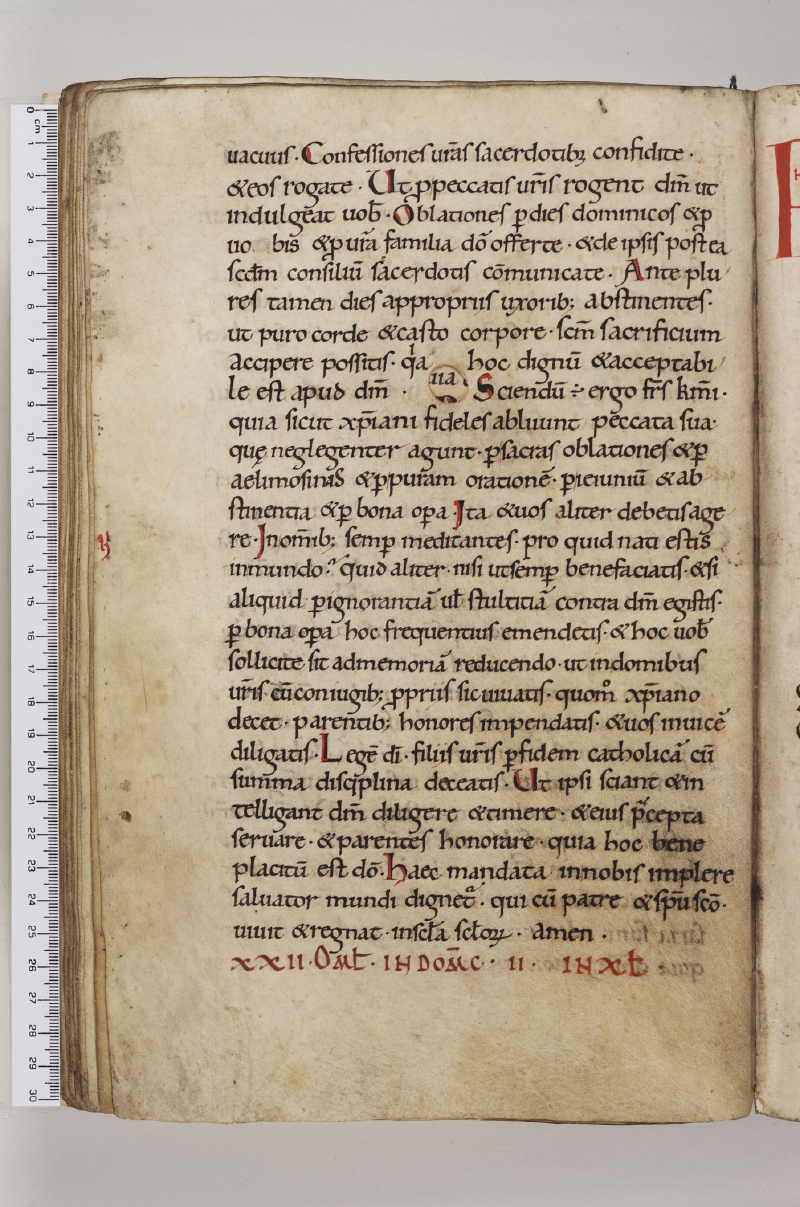 uacuuſ. Confeſſioneſ ur̄aſ ſacerdotib; confidite.
&eoſ rogate. Ut ꝓpeccatiſ ur̄iſ rogent dm̄ ut
indulgeat uob̄. Oblationeſ ꝑdieſ dominicoſ &ꝑ
uo biſ &ꝑur̄a familia dō offerte. &de ipſiſ poſtea
ſcd̄m conſiliū ſacerdotiſ cōmunicate. Ante plu
reſ tamen dieſ appropriiſ uxorib; abſtinenteſ.
ut puro corde &caſto corpore. ſcm̄ ſacrificium
accipere poſſitiſ. qͥa hoc dignū &acceptabi
le eſt apud dm̄. Sciendū ÷ ergo fr̄ſ km̄i.
quia ſicut xp̄iani fideleſ abluunt peccata ſua.
quę neglegenter agunt. ꝑſacraſ oblationeſ &ꝑ
aelimoſinaſ &ꝑpuram orationē. ꝑieiuniū &ab
ſtinentia &ꝑ bona oꝑa. Ita &uoſ aliter debetiſ age
re. Inom̄ib; ſemꝑ meditanteſ. pro quid nati eſtiſ
inmundo. quid aliter. niſi utſemꝑ benefaciatiſ. &ſi
aliquid ꝑignorantiā ul̄ ſtultitiā contra dm̄ egiſtiſ.
ꝑ bona oꝑa hoc frequentiuſ emendetiſ. &hoc uob̄
ſollicite ſit admemoriā reducendo. ut indomibuſ
ur̄iſ cū coniugib; ꝓpriiſ ſic uiuatiſ. quom̊ xp̄iano
decet. parentib; honoreſ impendatiſ. &uoſ inuicē
diligatiſ. Legē dī. filiiſ ur̄iſ ꝑfidem catholicā cū
ſumma diſcͥplina doceatiſ. Ut ipſi ſciant &in
telligant dm̄ diligere &timere. &eiuſ p̄cepta
ſeruare. &parenteſ honorare. quia hoc bene
placitū eſt dō. Haec mandata innobiſ implere
ſaluator mundi dignet᷑. qui cū patre &ſpū ſcō.
uiuit &regnat. inſcl̄a ſcl̄oꝝ. amen.
XXII. OML̄. IN DOM̄C. II. IN XL̄.